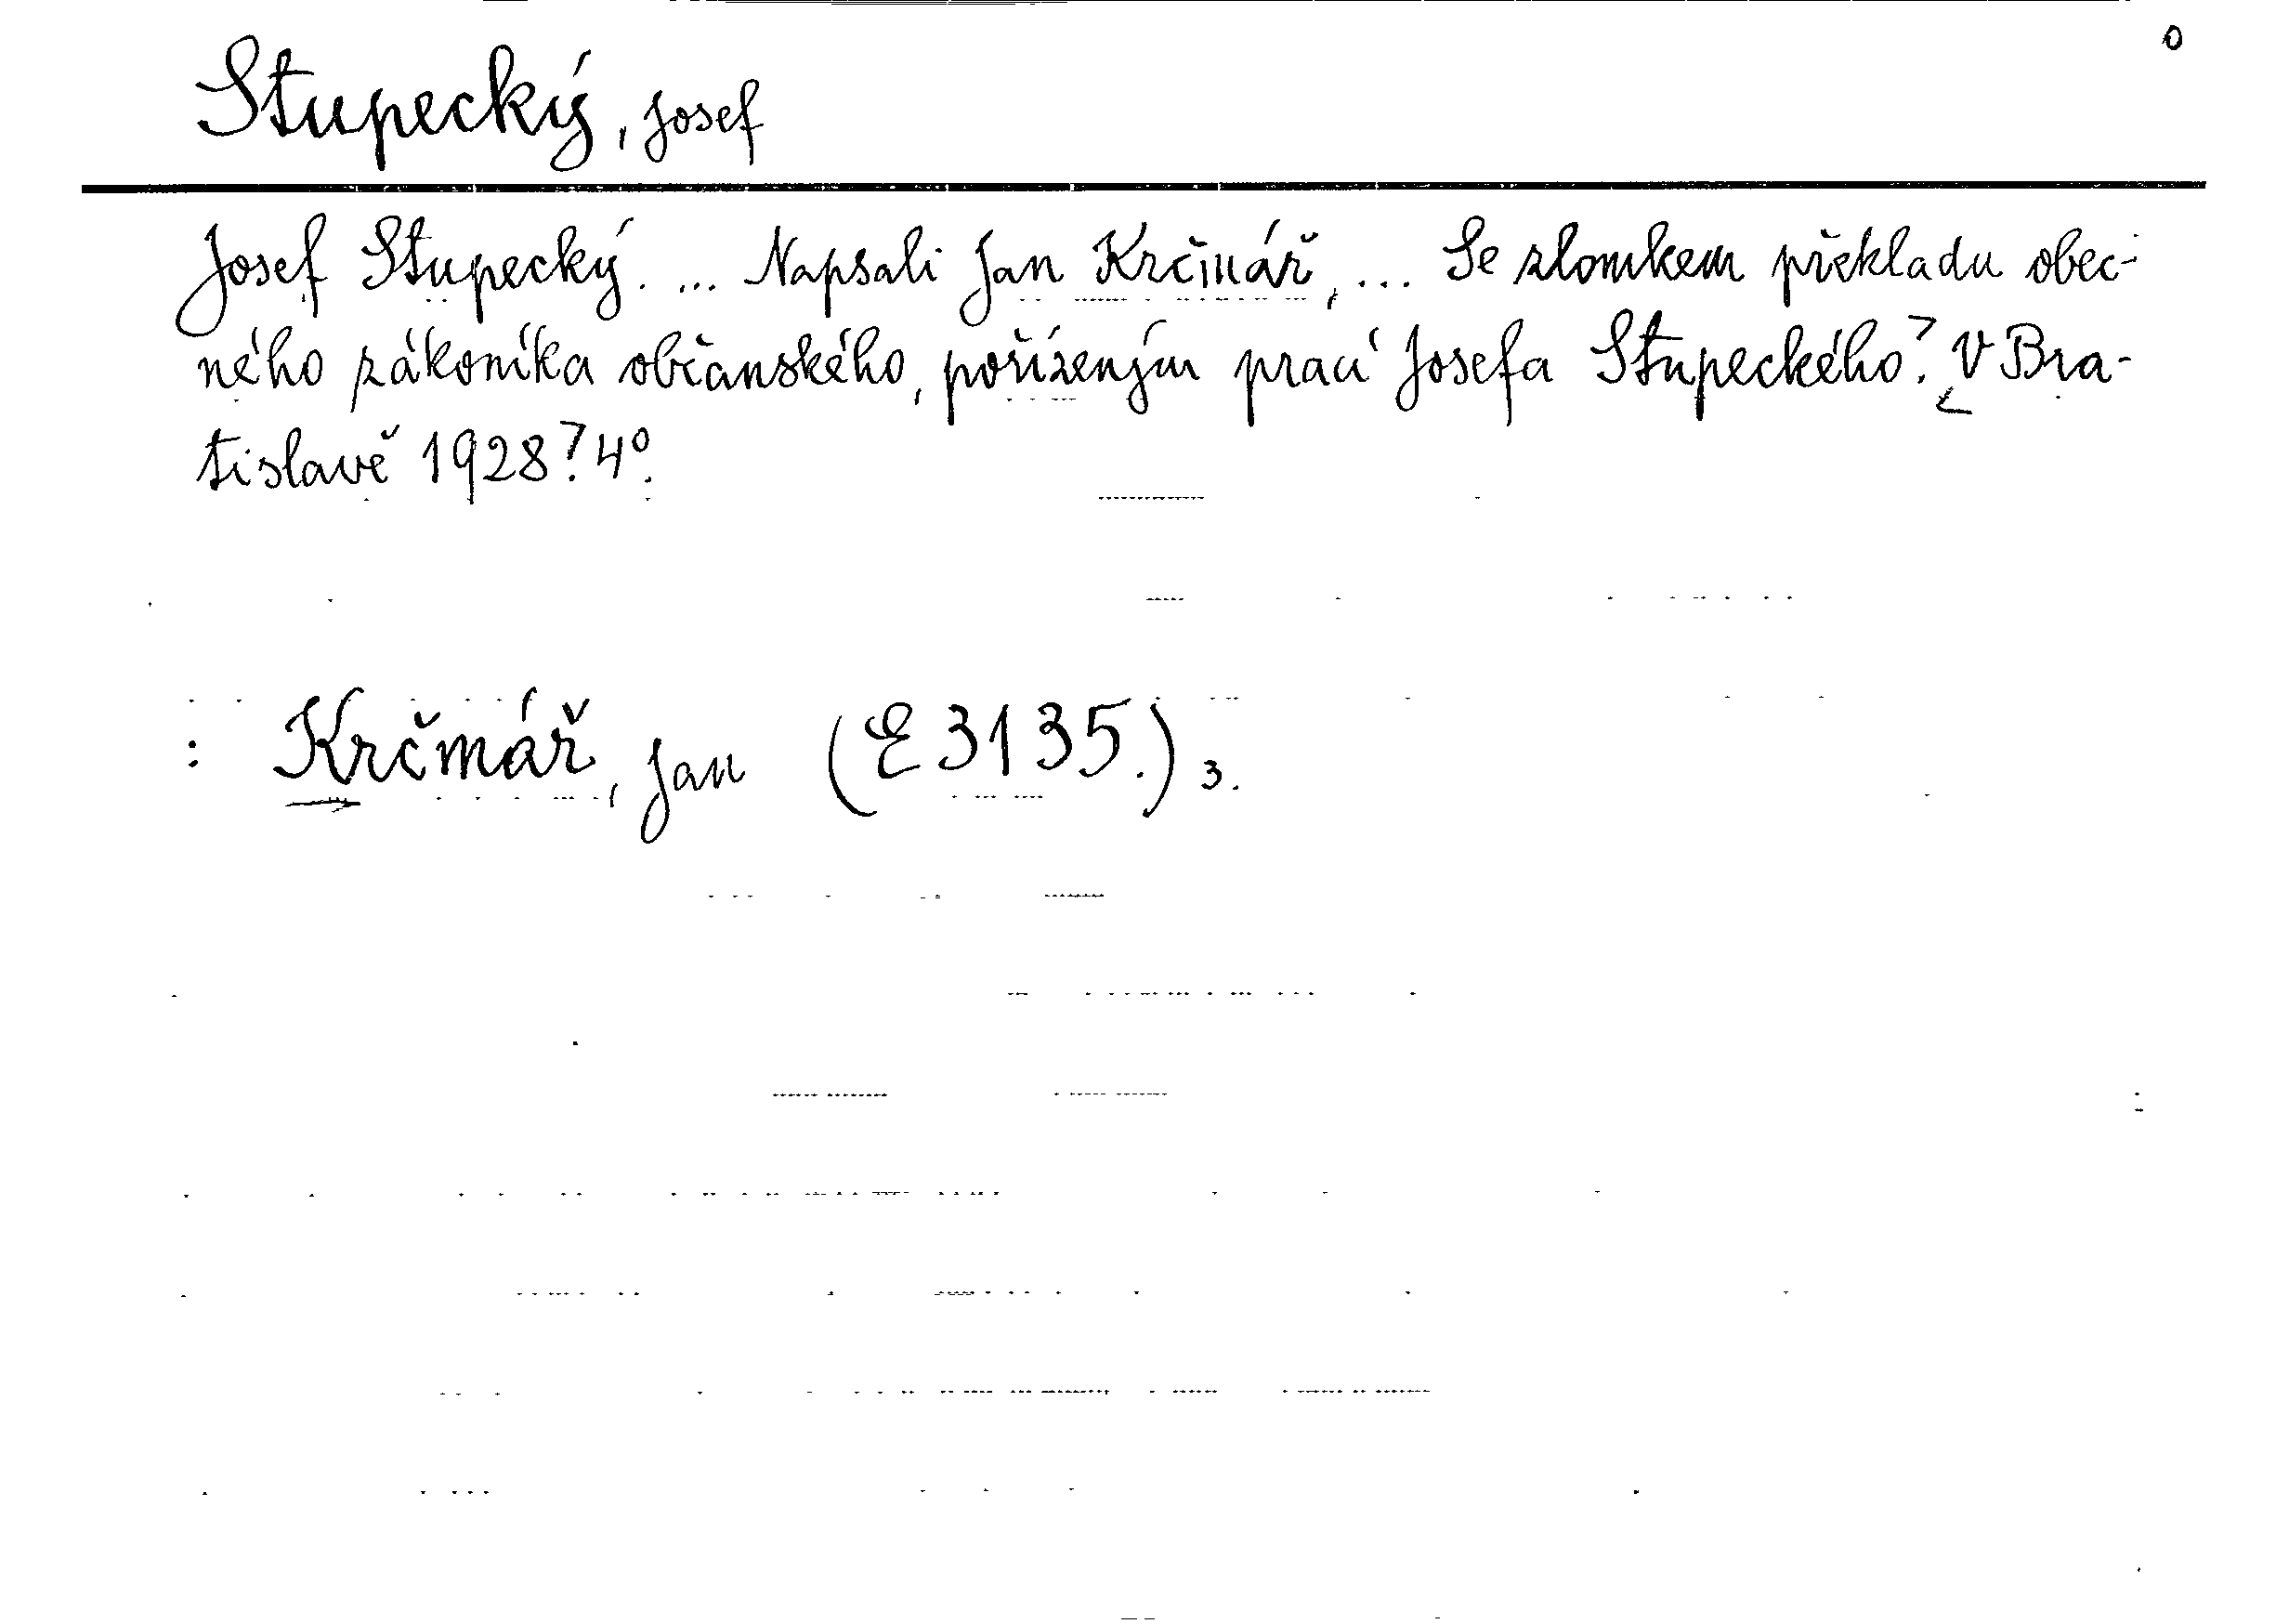 0
Stupecký, Josef
Josef Stupecký. ... Napsali Jan Krčmář, ... Se zlomkem překladu obec-
ného zákoníka občanského, pořízeným prací Josefa Stupeckého? V Bra-
tislavě 1928? 4°.
: Krčmář, Jan (E 3135.) 3.